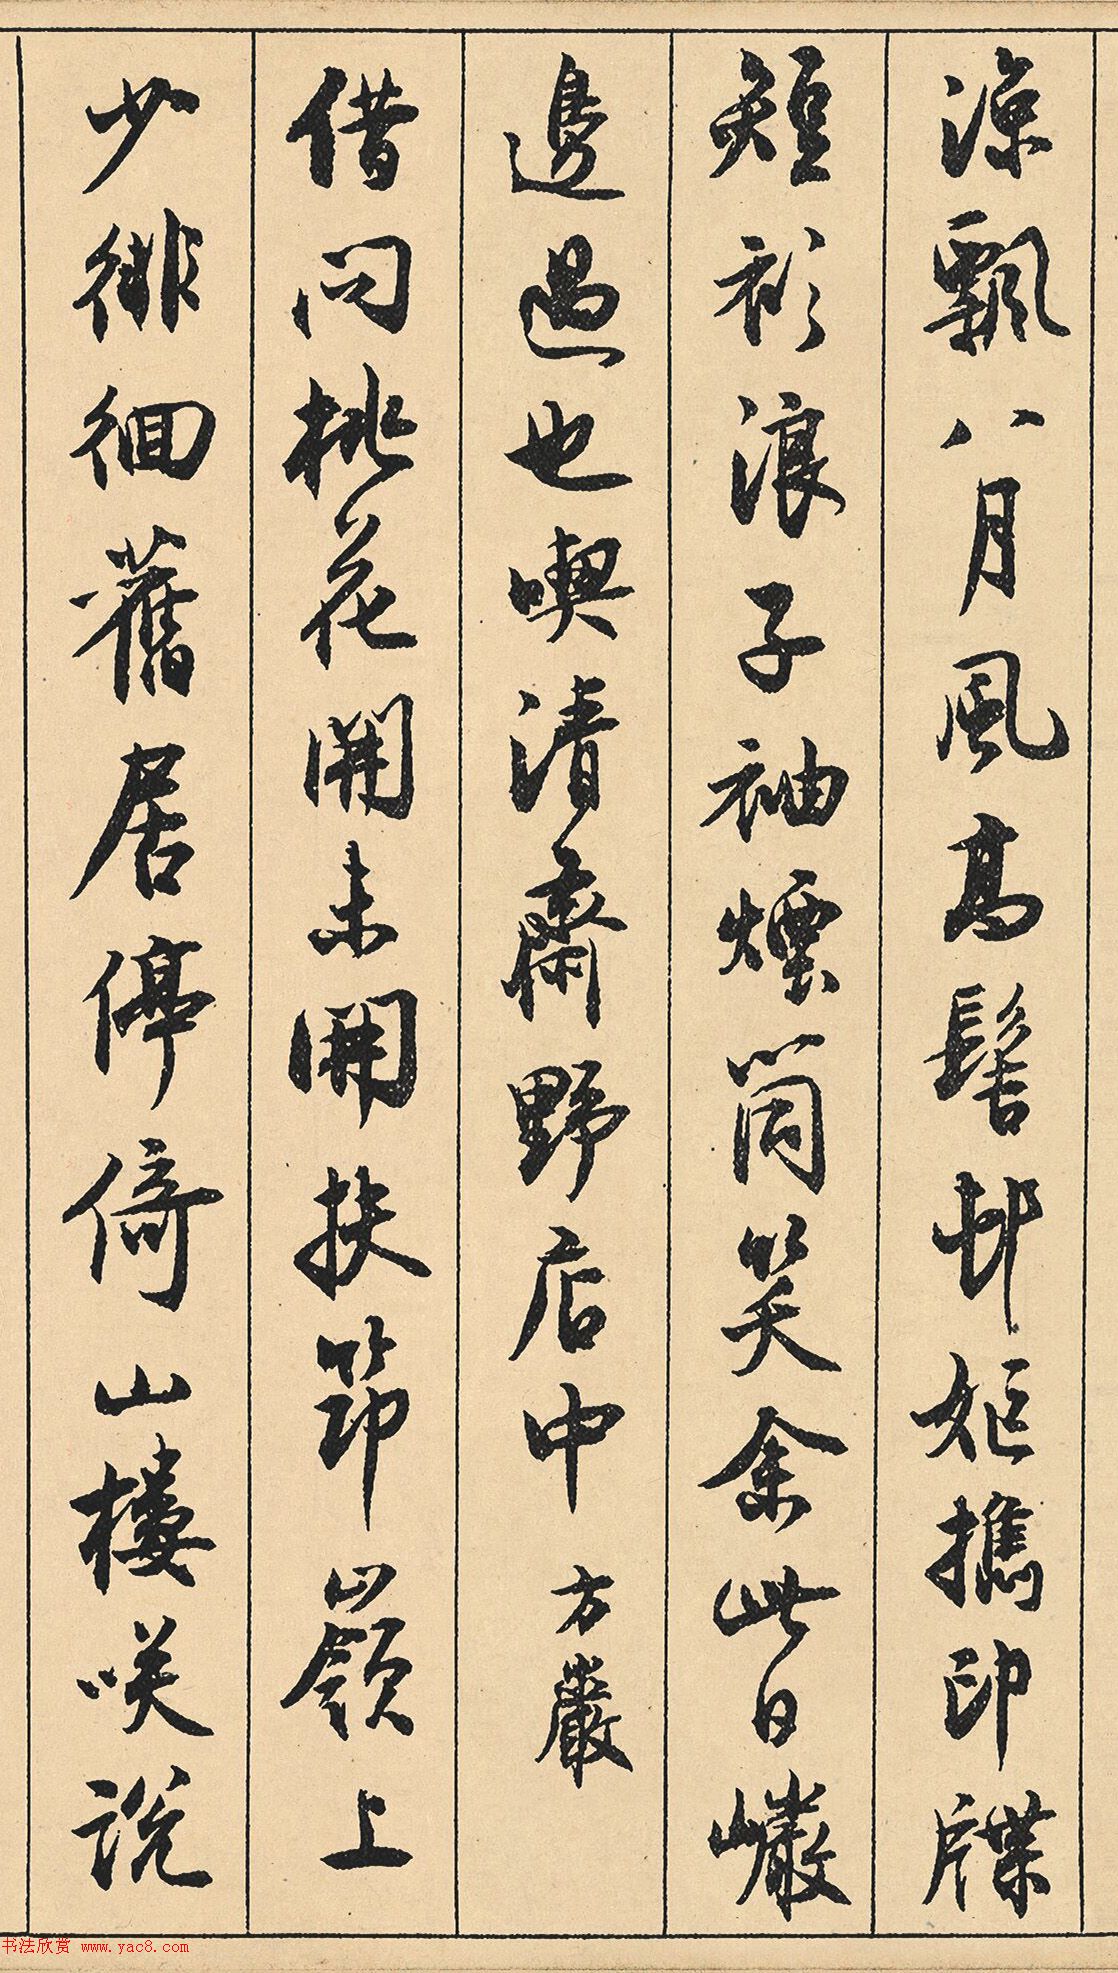 涼飄八月風高髻邨姬攜印牒
短衫浪子袖煙筒笑余此日巖
邊過也喫清齋野店中 方巖
借問桃花開未開扶筇嶺上
少徘徊舊居停倚山樓咲說
书法欣赏 www.yac8.com